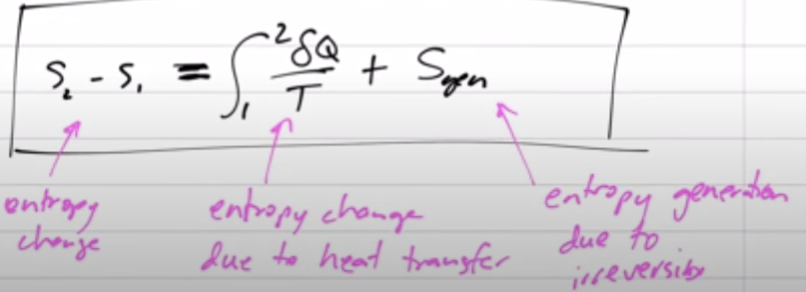 S₂ - S₁ = ∫₁² δQ/T + Sgen
entropy
change
entropy change
due to heat transfer
entropy generation
due to
irreversibs